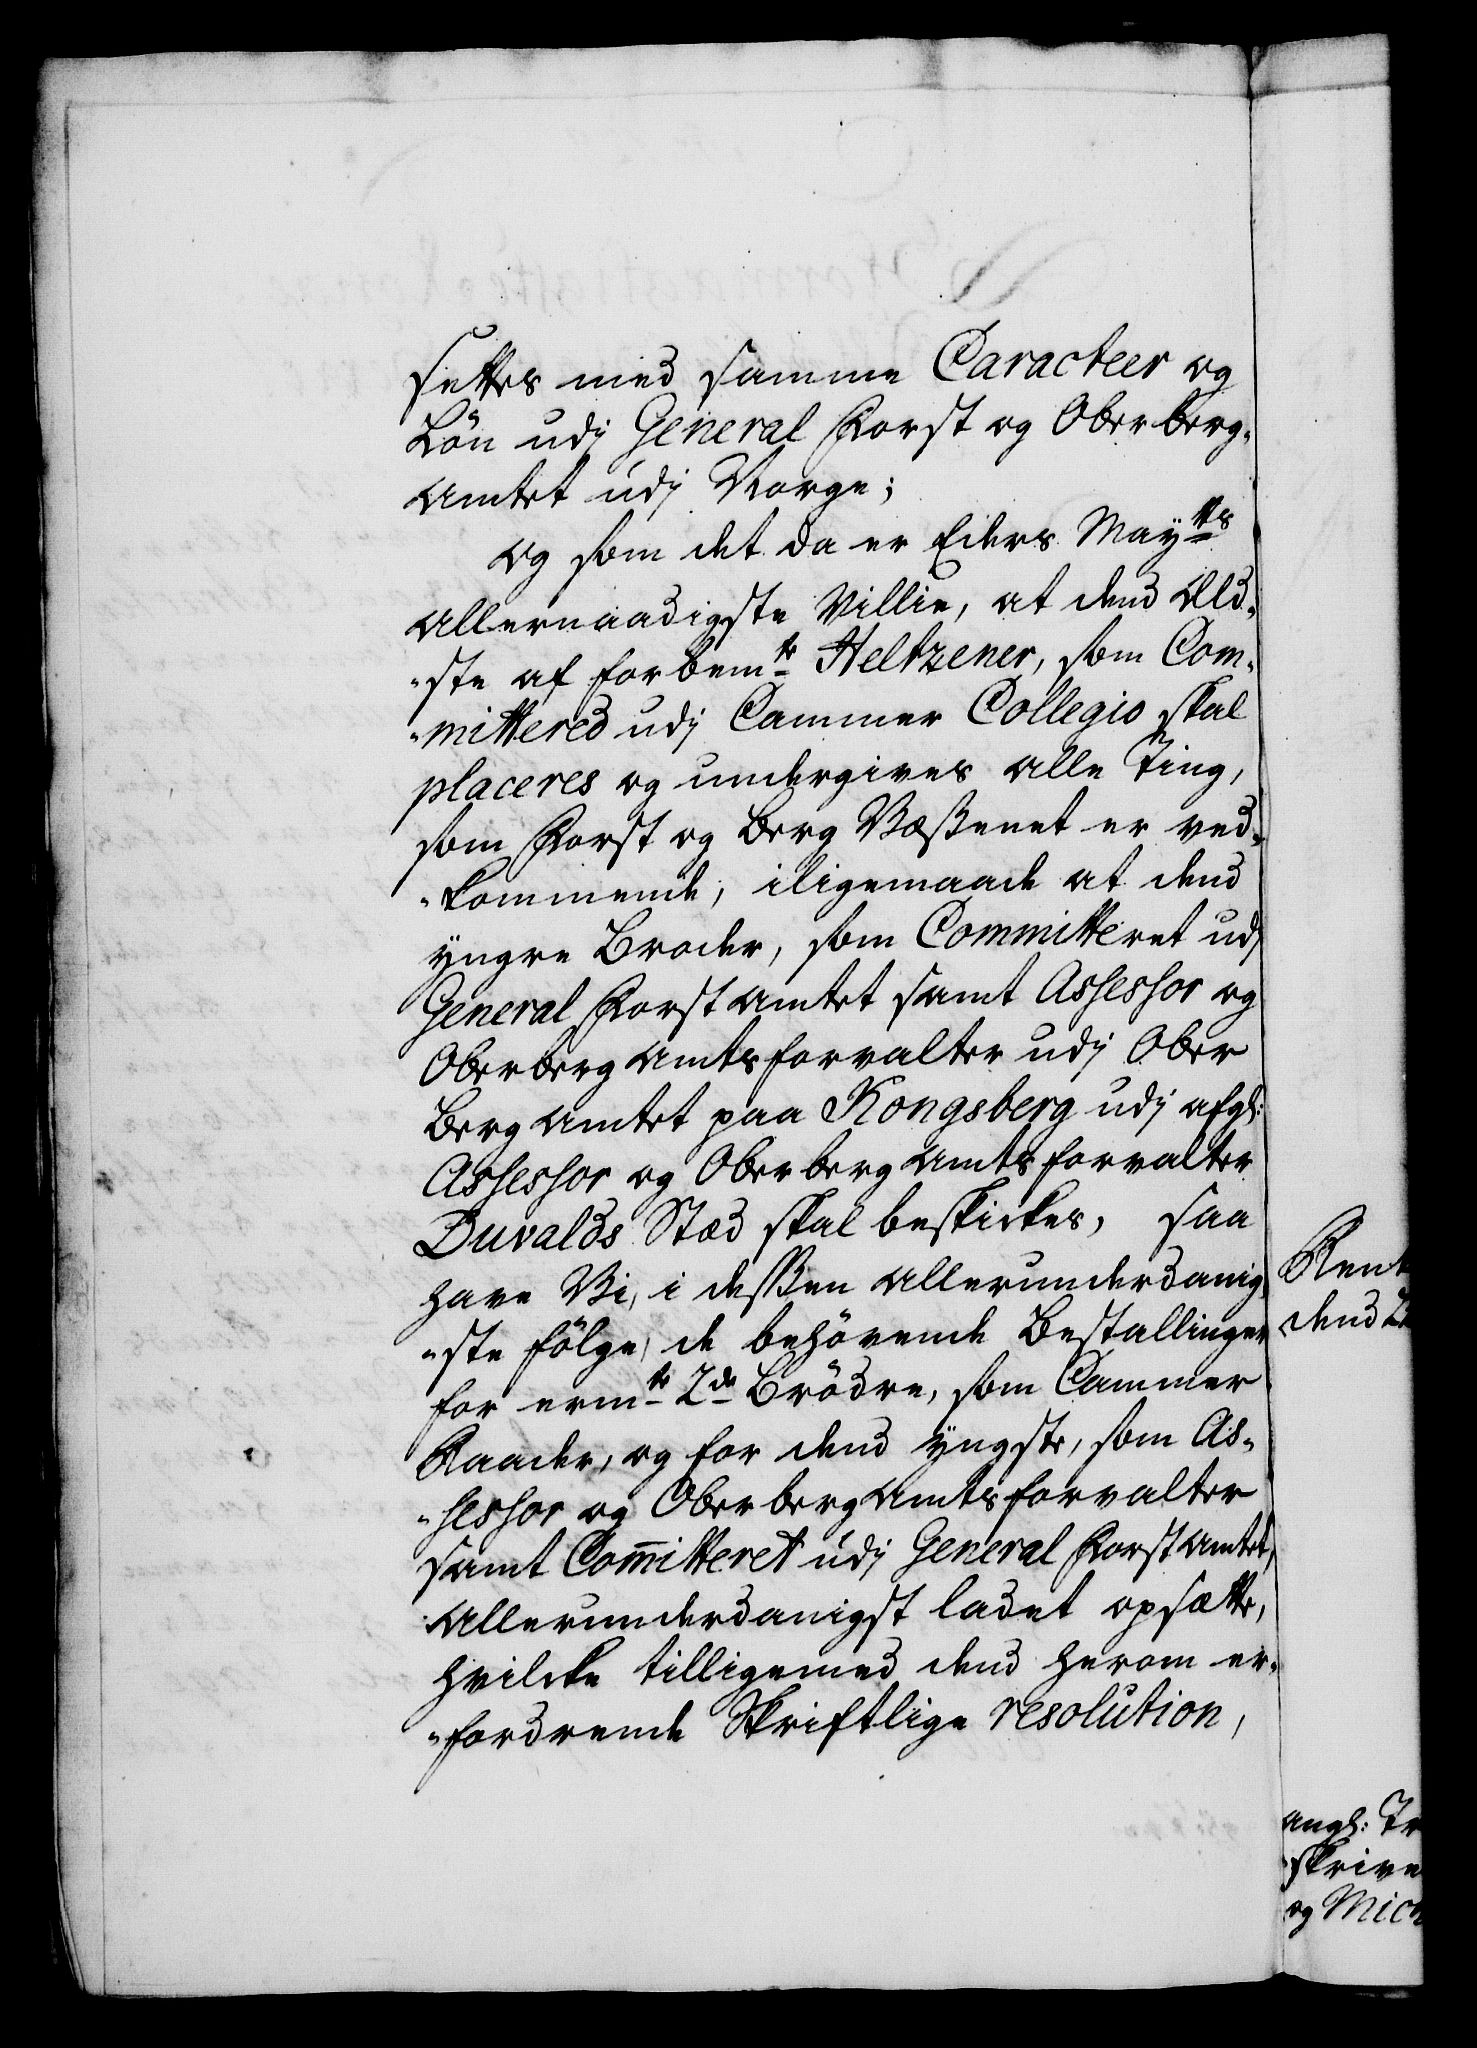 settes med samme Caracteer og
Løn udj General Forst og Oberberg-
amtet udj Norge;
og som det da er Eders May<sup>tts</sup>
allernaadigste Villie, at dend Æld-
-ste af forbem<sup>te</sup> Heltzener, som Com-
-mittered udj Cammer Collegio skal
placeres og undergives alle Ting,
som Forst og Berg Væßenet er ved-
-kommende, iligemaade at dend
ÿngre Broder, som Committeret udj
General Forstamtet samt Assessor og
Oberbergamtsforvalter udj Ober
Bergamtet paa Kongsberg udj afg<sup>l</sup>:
Assessor og Oberbergamtsforvalter
Duvalds Stæd skal beskickes, saa
have Vi, i deßen allerunderdanig-
-ste følge, de behövende Bestallinger
for erm<sup>te</sup> 2<sup>de</sup> Brödre, som Cammer
Raader, og for dend ÿngste, som As-
-sessor og Oberbergamtsforvalter
samt Com̄itteret udj General Forstamtet,
allerunderdanigst ladet opsætte,
hvilcke tilligemed dend herom er-
-fordrende Skriftlige resolution,
Rent
dend
angl: Tr
skrive
og Mich